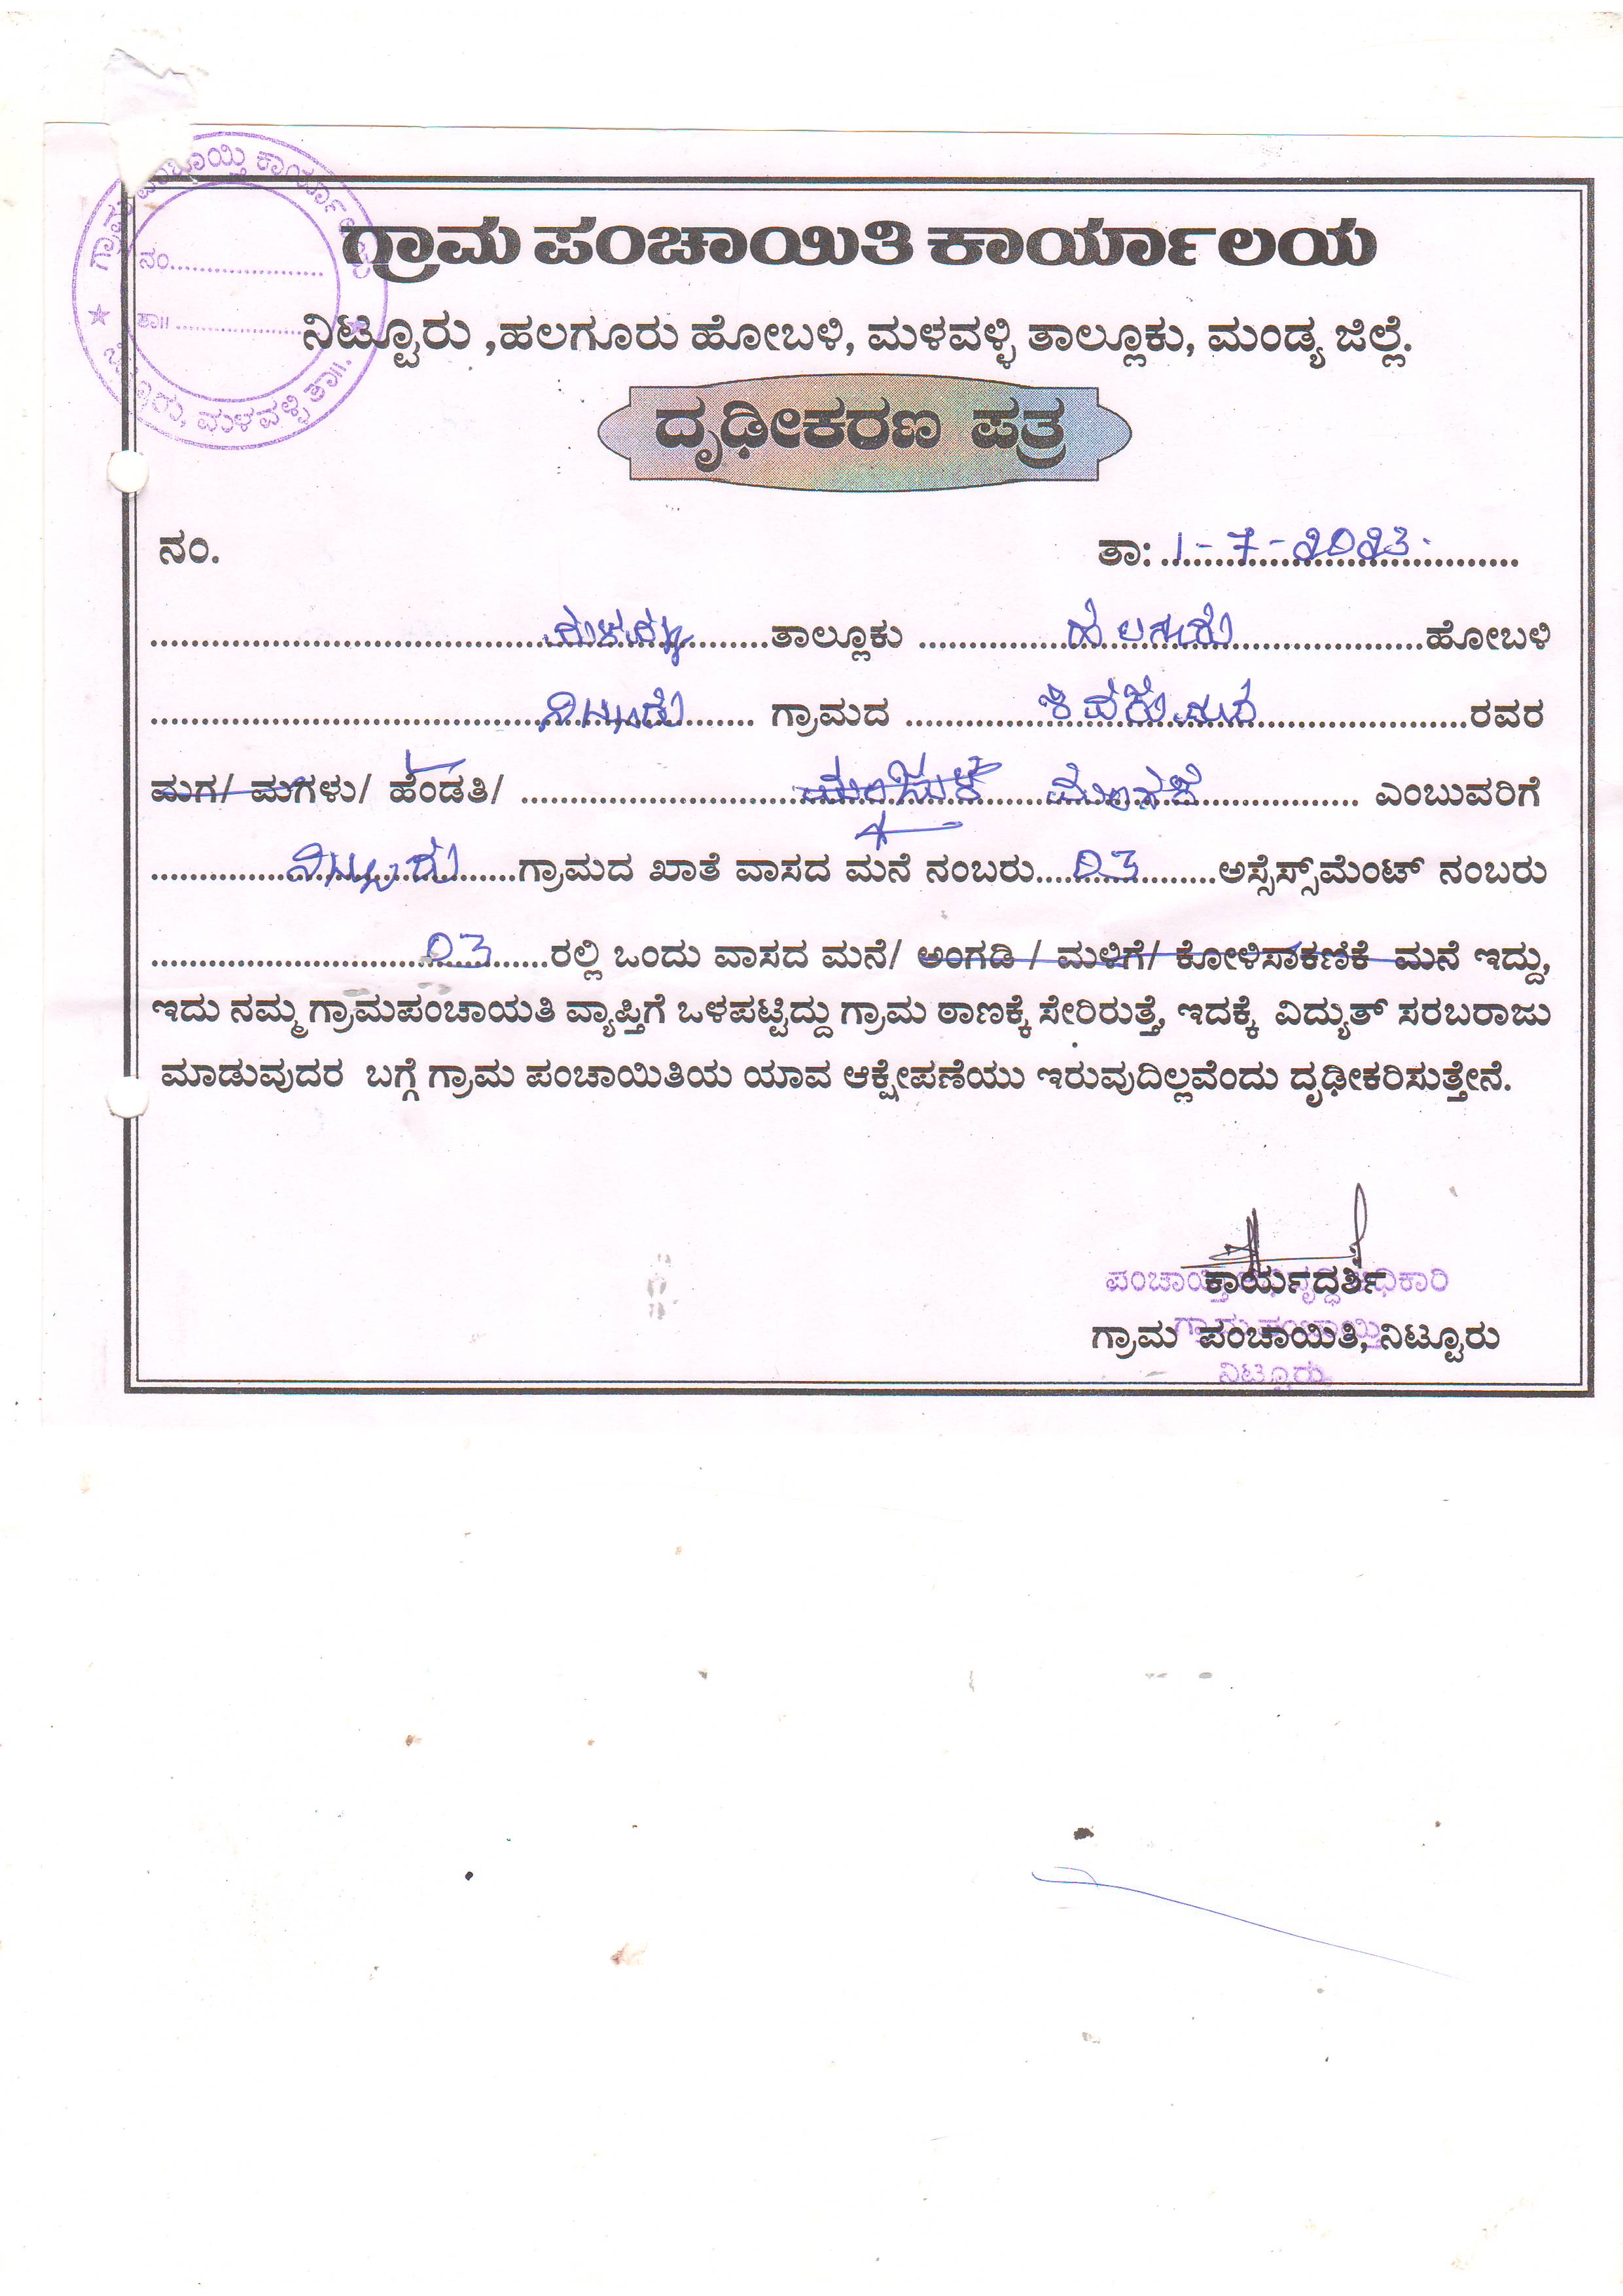 ಗ್ರಾಮ ಪಂಚಾಯಿತಿ ಕಾರ್ಯಾಲಯ
ನಂ.....................
ತಾ॥ .....................
ಮಳವಳ್ಳಿ ತಾ॥.
ನಿಟ್ಟೂರು ,ಹಲಗೂರು ಹೋಬಳಿ, ಮಳವಳ್ಳಿ ತಾಲ್ಲೂಕು, ಮಂಡ್ಯ ಜಿಲ್ಲೆ.
ದೃಢೀಕರಣ ಪತ್ರ
ನಂ. ತಾ: 1-7-2023
ಮಳವಳ್ಳಿ ತಾಲ್ಲೂಕು ಹಲಗೂರು ಹೋಬಳಿ
ನಿಟ್ಟೂರು ಗ್ರಾಮದ ರವರ
ಮಗ/ ಮಗಳು/ ಹೆಂಡತಿ/ ಎಂಬುವರಿಗೆ
ನಿಟ್ಟೂರು ಗ್ರಾಮದ ಖಾತೆ ವಾಸದ ಮನೆ ನಂಬರು 03 ಅಸ್ಸೆಸ್ಸ್‌ಮೆಂಟ್ ನಂಬರು
03 ರಲ್ಲಿ ಒಂದು ವಾಸದ ಮನೆ/ ಅಂಗಡಿ / ಮಳಿಗೆ/ ಕೋಳಿಸಾಕಣಿಕೆ ಮನೆ ಇದ್ದು,
ಇದು ನಮ್ಮ ಗ್ರಾಮಪಂಚಾಯತಿ ವ್ಯಾಪ್ತಿಗೆ ಒಳಪಟ್ಟಿದ್ದು ಗ್ರಾಮ ಠಾಣಕ್ಕೆ ಸೇರಿರುತ್ತೆ, ಇದಕ್ಕೆ ವಿದ್ಯುತ್ ಸರಬರಾಜು
ಮಾಡುವುದರ ಬಗ್ಗೆ ಗ್ರಾಮ ಪಂಚಾಯಿತಿಯ ಯಾವ ಆಕ್ಷೇಪಣೆಯು ಇರುವುದಿಲ್ಲವೆಂದು ದೃಢೀಕರಿಸುತ್ತೇನೆ.
ಕಾರ್ಯದರ್ಶಿ
ಗ್ರಾಮ ಪಂಚಾಯಿತಿ, ನಿಟ್ಟೂರು
ನಿಟ್ಟೂರು